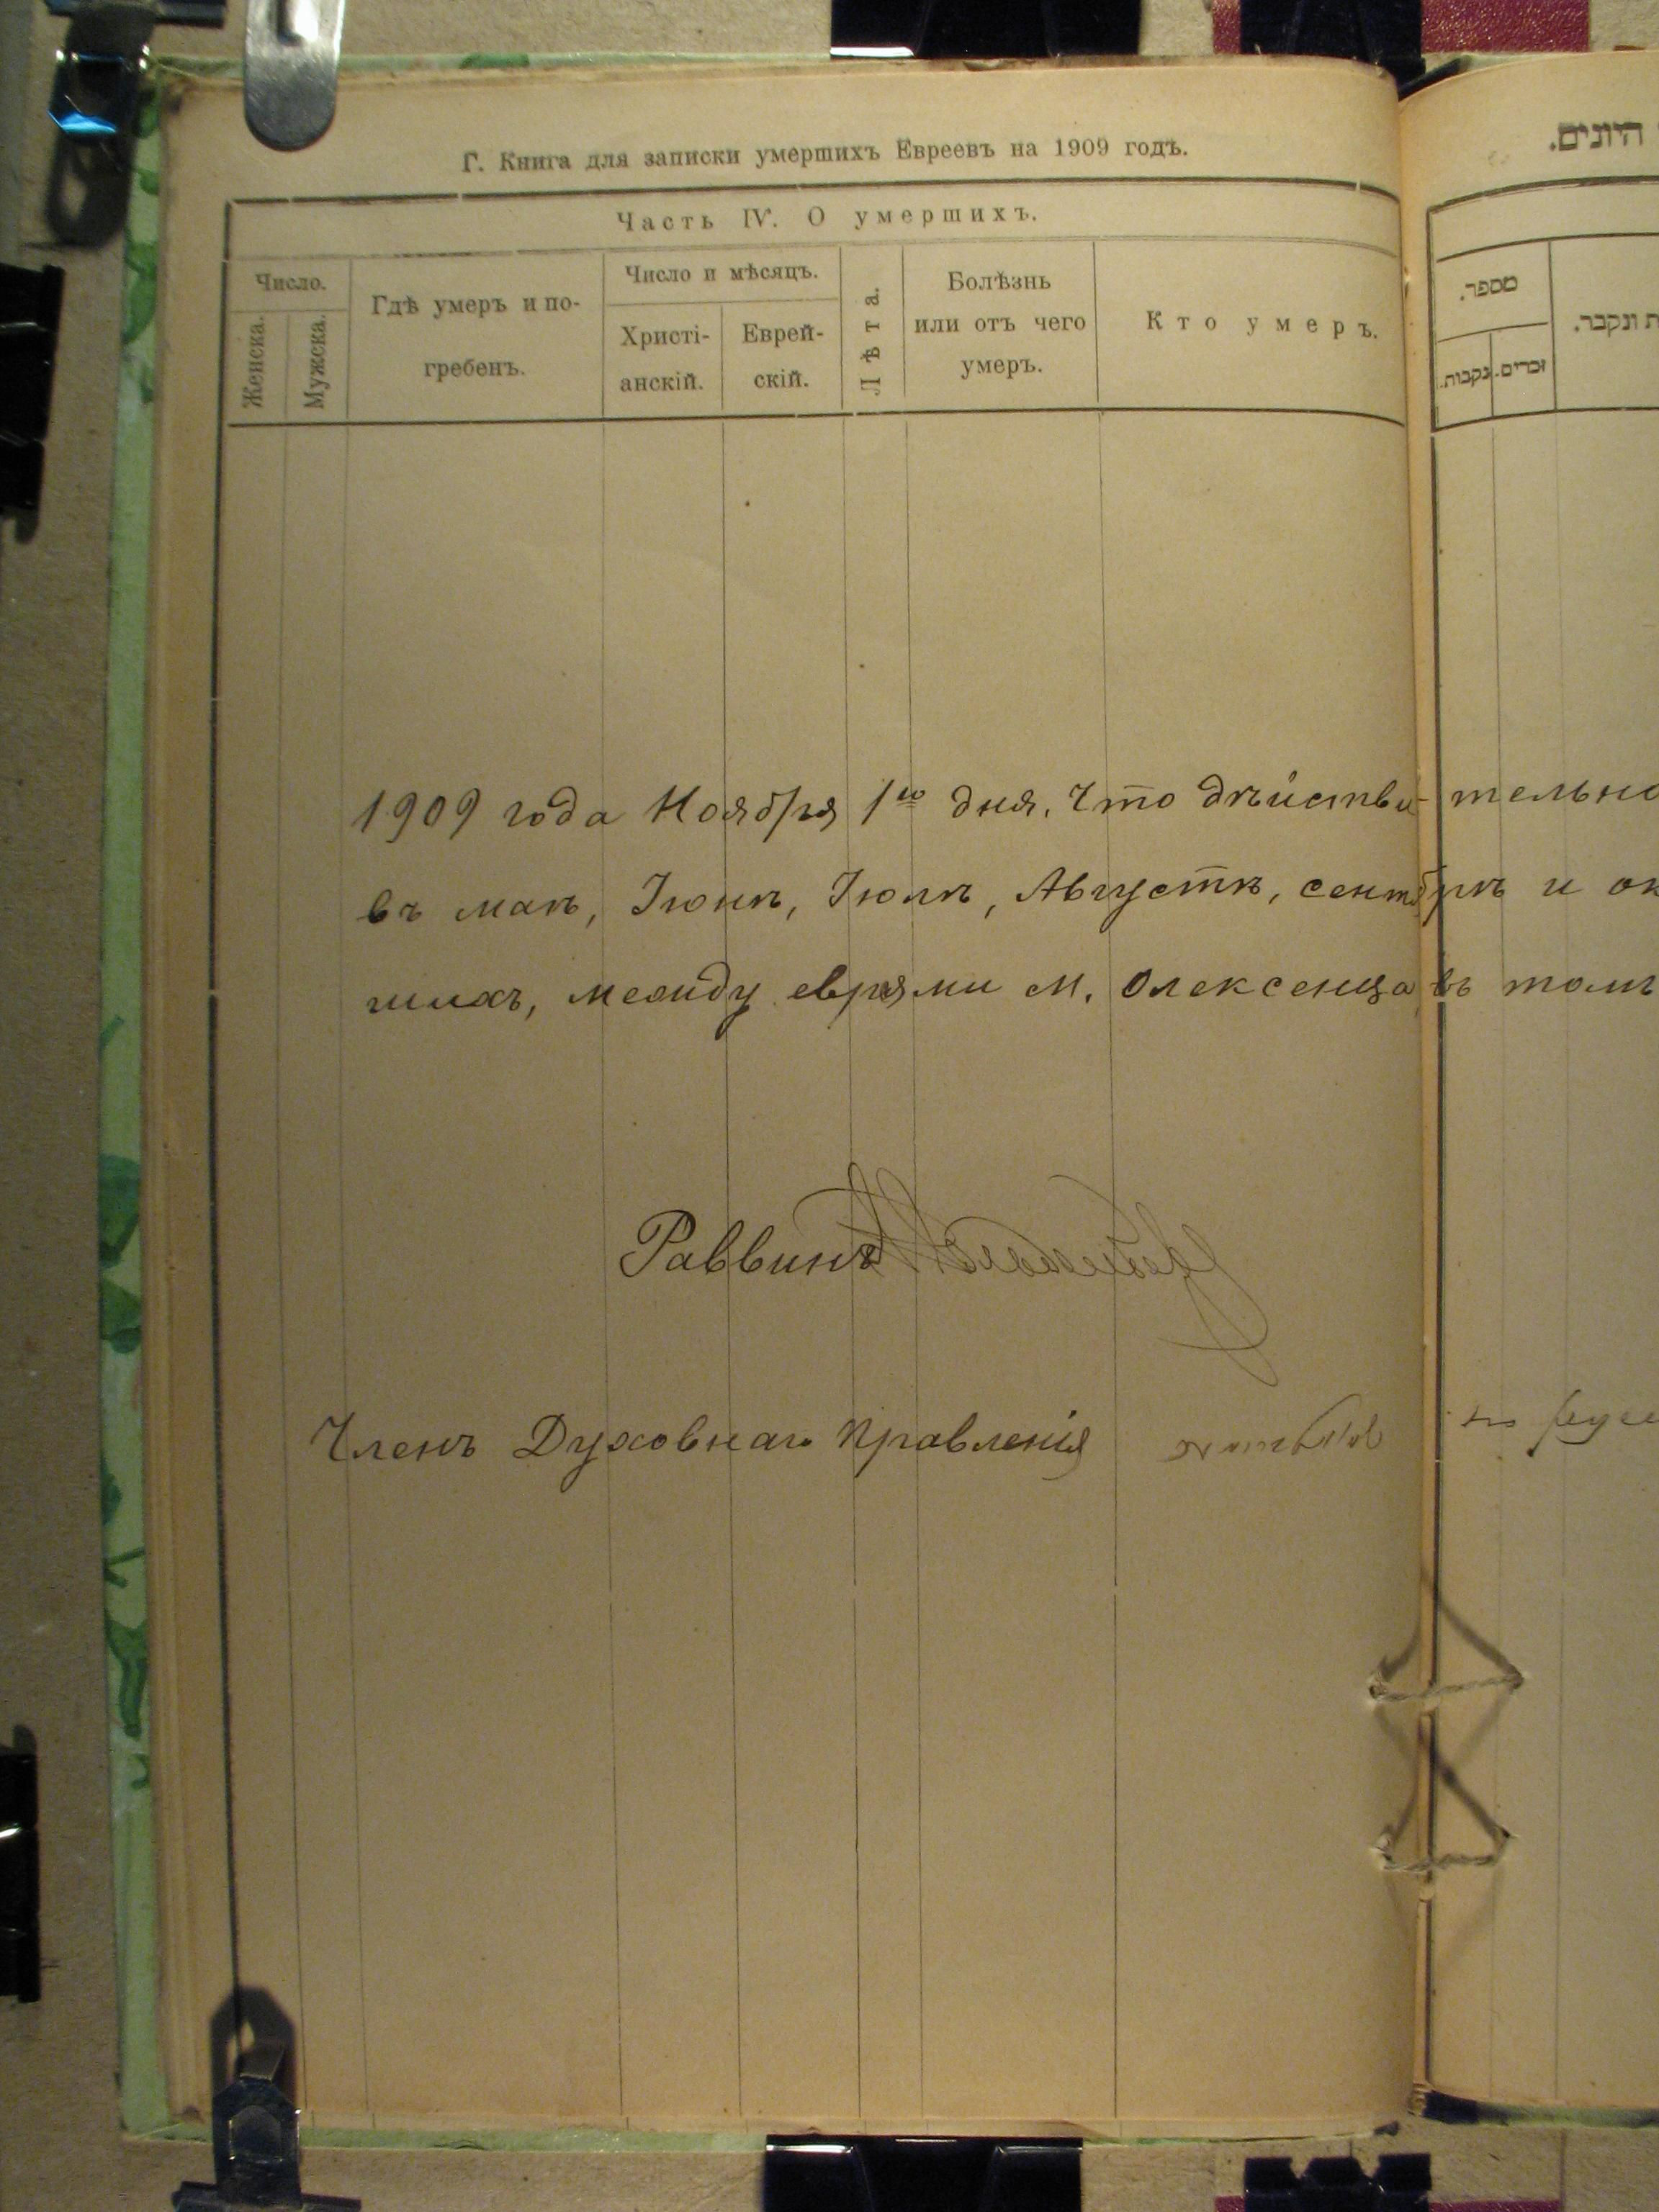 Г. Книга для записки умершихъ Евреевъ на 1909 годъ.
Часть IV. О умершихъ.
Число.
Женска.
Мужска.
Гдѣ умеръ и по-
гребенъ.
Число и мѣсяцъ.
Христі-
анскій.
Еврей-
скій.
Лѣта.
Болѣзнь
или отъ чего
умеръ.
Кто умеръ.
1909 года Ноября 1го дня. Что дѣйстви-тельно
въ маѣ, Іюнѣ, Іюлѣ, Августѣ, сентябрѣ и ок
шихъ, между евреями м. Олексенца въ томъ
Раввинъ
Членъ Духовнаго Правленія
היונים.
מספר.
נקבות.
זכרים.
ת ונקבר.